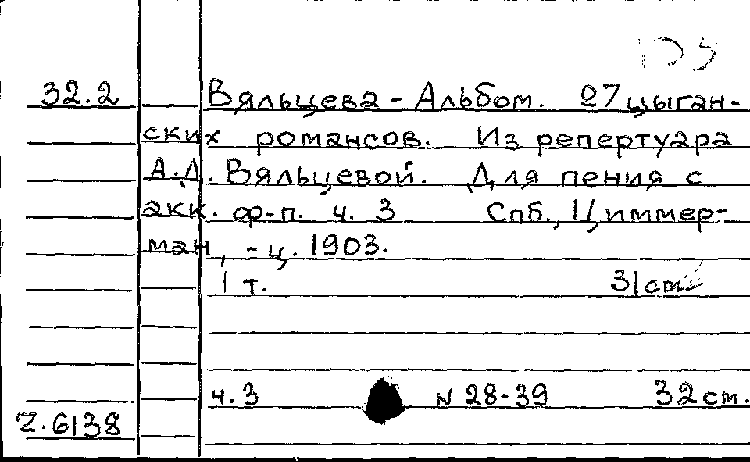 32.2 Вяльцева - Альбом. 27 цыган-
ских романсов. Из репертуара
А.Д. Вяльцевой. Для пения с
акк. ф-п. ч. 3 Спб., Циммер-
ман, - ц. 1903.
1 т. 31 cm
ч.3 N 28-39 32 cm.
Z.6138